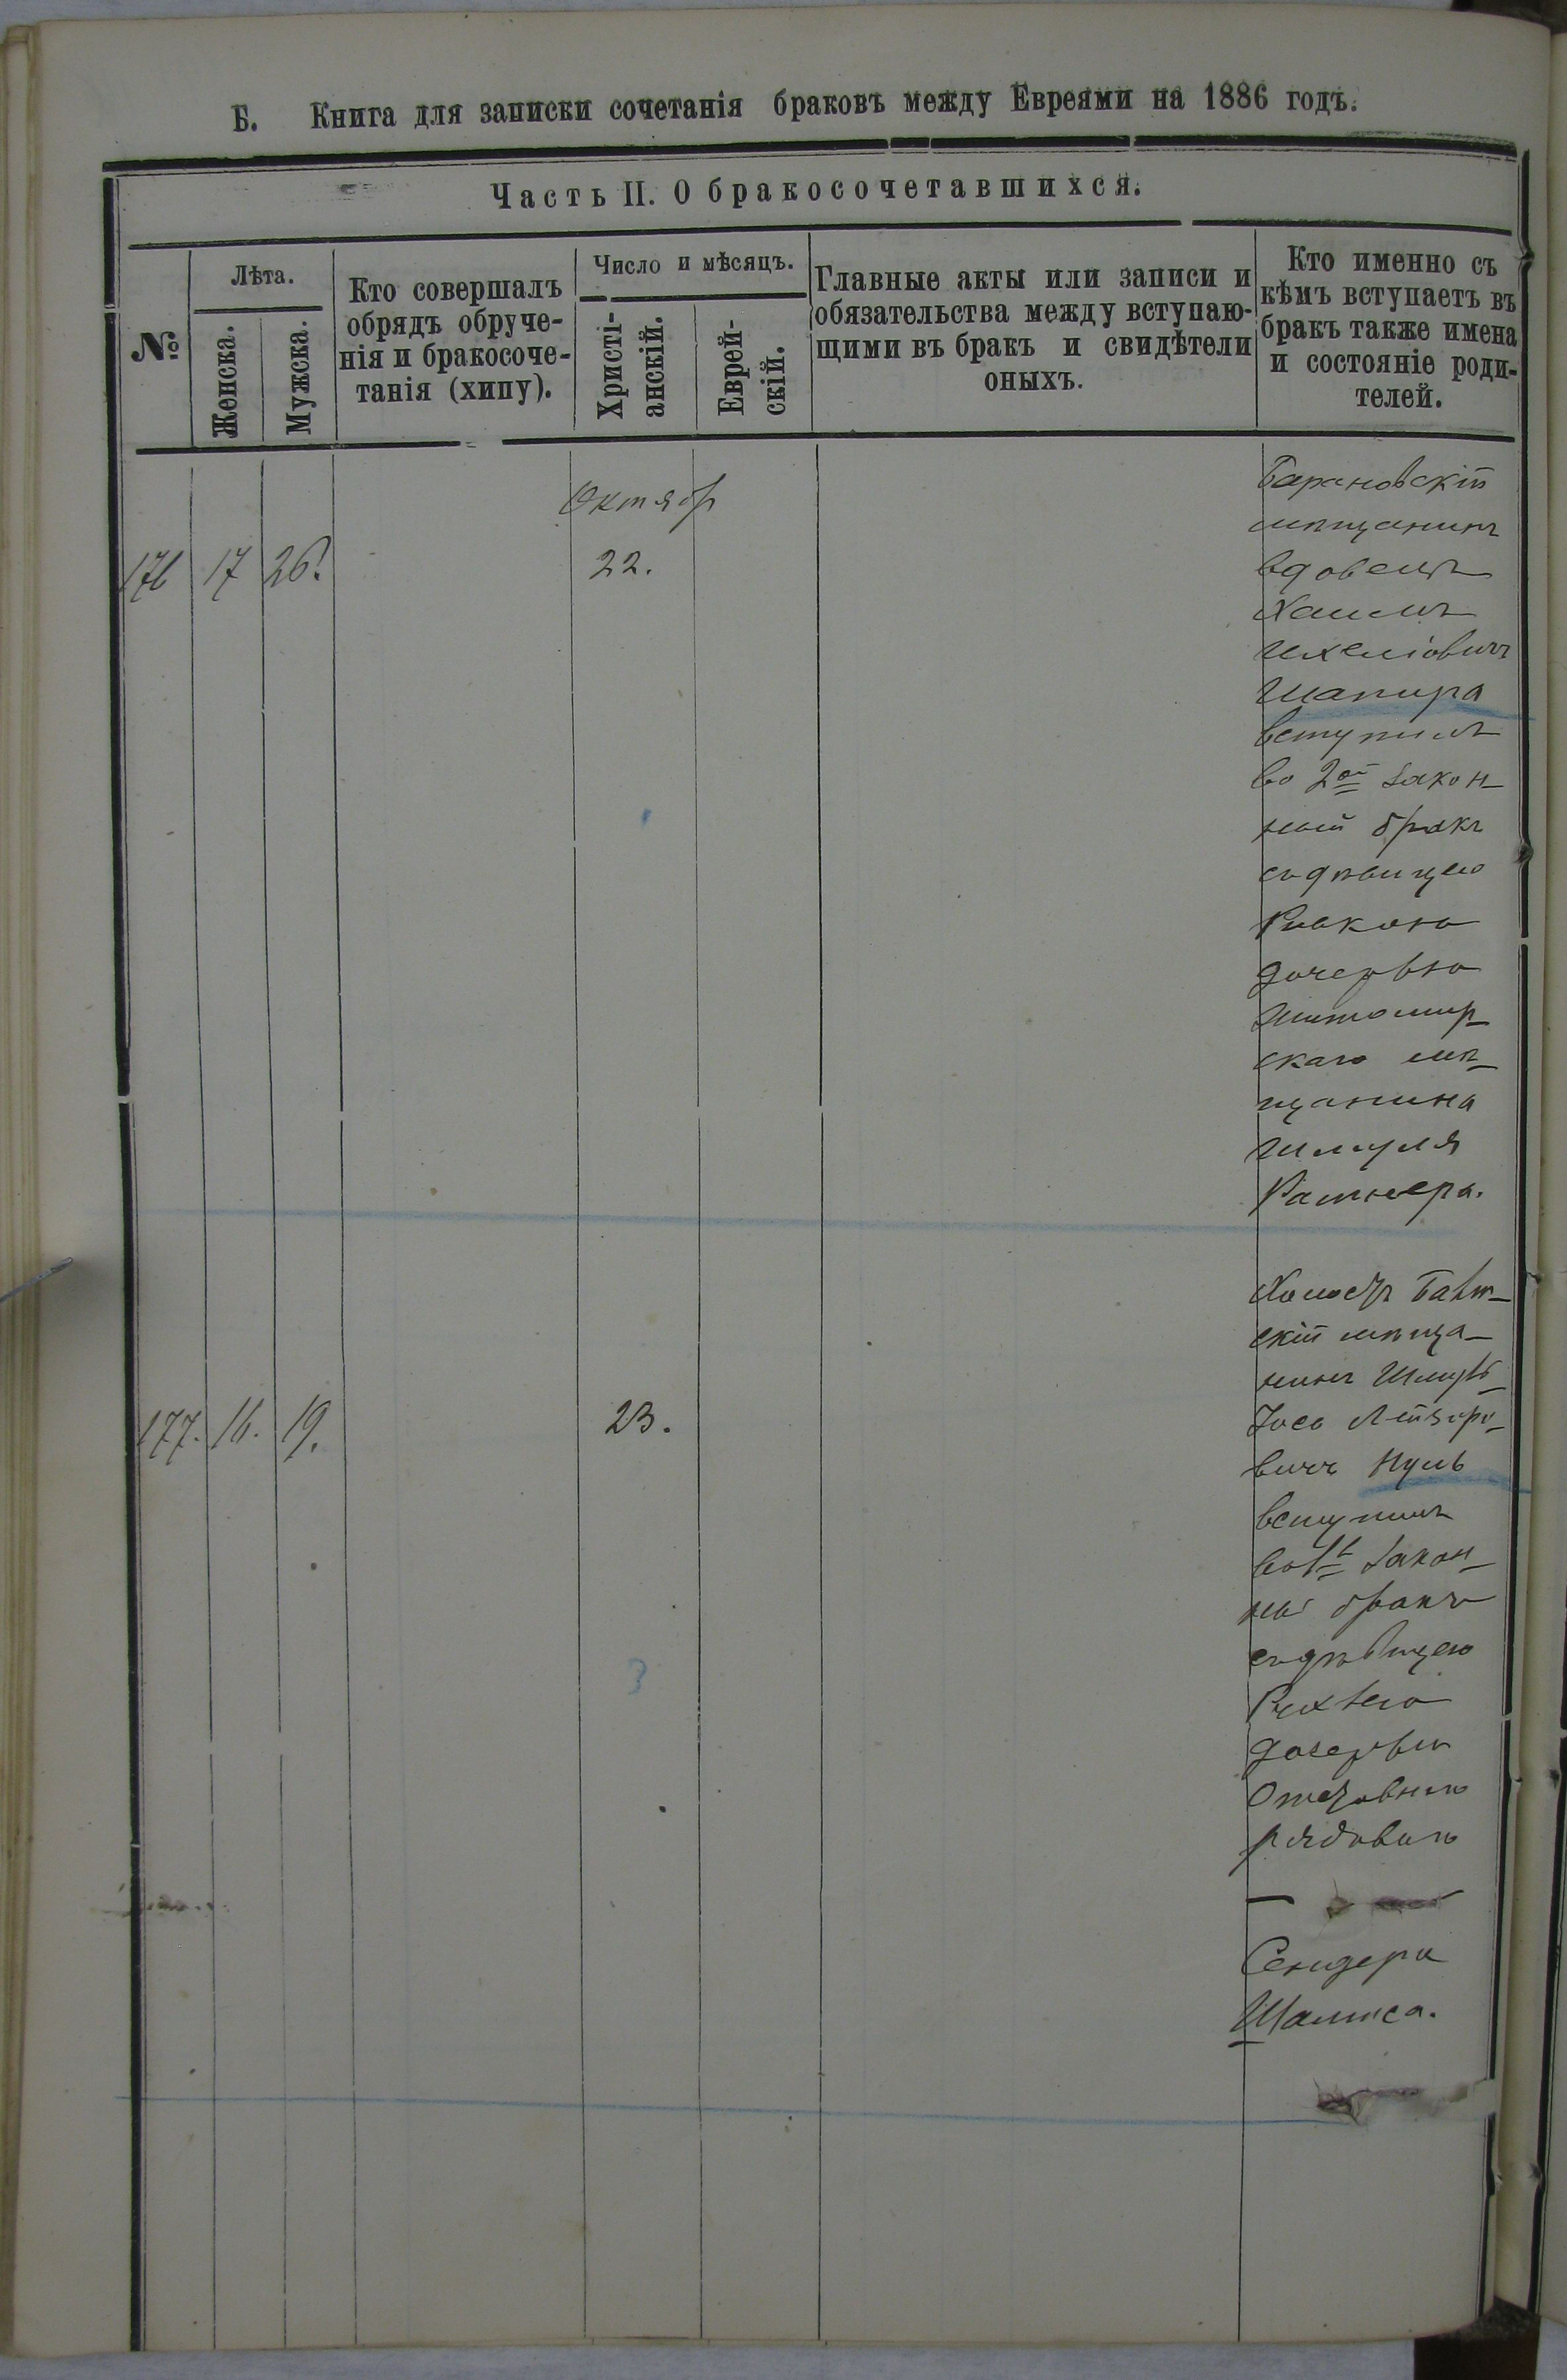 Б. Книга для записки сочетанія браковъ между Евреями на 1886 годъ.
Часть II. О бракосочетавшихся.
№
Лѣта.
Женска.
Мужска.
Кто совершалъ
обрядъ обруче-
нія и бракосоче-
танія (хипу).
Число и мѣсяцъ.
Христі-
анскій.
Еврей-
скій.
Главные акты или записи и
обязательства между вступаю-
щими въ бракъ и свидѣтели
оныхъ.
Кто именно съ
кѣмъ вступаетъ въ
бракъ также имена
и состояніе роди-
телей.
Октябр
176 17 26. 22.
Барановскій
мѣщанинъ
вдовецъ
Хаимъ
Ихеліовичъ
Шапира
вступилъ
во 2ой закон-
ный бракъ
съ дѣвицею
Ривкою
дочерью
Житомир-
скаго мѣ-
щанина
Шмуля
Ратнера.
177. 16. 19. 23.
Холостъ
скій мѣща-
нинъ Шмуль
Іось Лейзеро-
вичъ Нуль
вступилъ
во 1й закон-
ный бракъ
съ дѣвицею
Рухлею
дочерью
рядового
Сендера